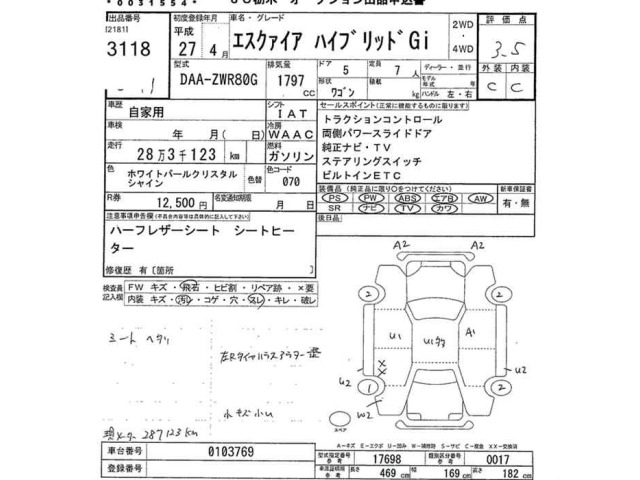 *0031554*
出品番号 初度登録年月 車名・グレード 2WD 評価点
[2181]
3118 平成 27年 4月 エスクァイア ハイブリッドGi ・4WD 3.5
型式 排気量 ドア 定員 ディーラー・並行 外装 内装
DAA-ZWR80G 1797 cc 5 7人 モデル年式 年 C C
ワゴン 積載 kg ハンドル 左・右
車歴 自家用 シフト IAT セールスポイント(正常に機能するものに限ります)
車検 年 月(日) 冷房 WAAC トラクションコントロール
両側パワースライドドア
走行 28万3千123km 燃料 ガソリン 純正ナビ・TV
ステアリングスイッチ
色 ホワイトパールクリスタルシャイン 色替 色コード 070 ビルトインETC
R券 12,500円 名変通知期限 月 日 装備品(純正品に限り○をつけてください) 新車保証書
PS PW ABS エアB AW 有・無
SR ナビ TV カワ
注意事項申告欄(不具合内容等は具体的に記入して下さい) 後日品
ハーフレザーシート シートヒーター
修復歴 有〔箇所
検査員記入欄 FW キズ・飛石・ヒビ割・リペア跡・×要
内装 キズ・汚レ・コゲ・穴・スレ・キレ・破レ
シート ヘタリ
小キズ小U
287123km
A2 A2
2 2
U1 U1 A1
X
X
U2 U2
1 2
W2
スペア
A-キズ E-エクボ U-凹み W-補修跡 S-サビ C-腐食 XX-交換済
車台番号 0103769 型式指定番号 参考 17698 類別区分番号 参考 0017
登録番号 車両証明 参考 長さ 469 cm 幅 169 cm 高さ 182 cm